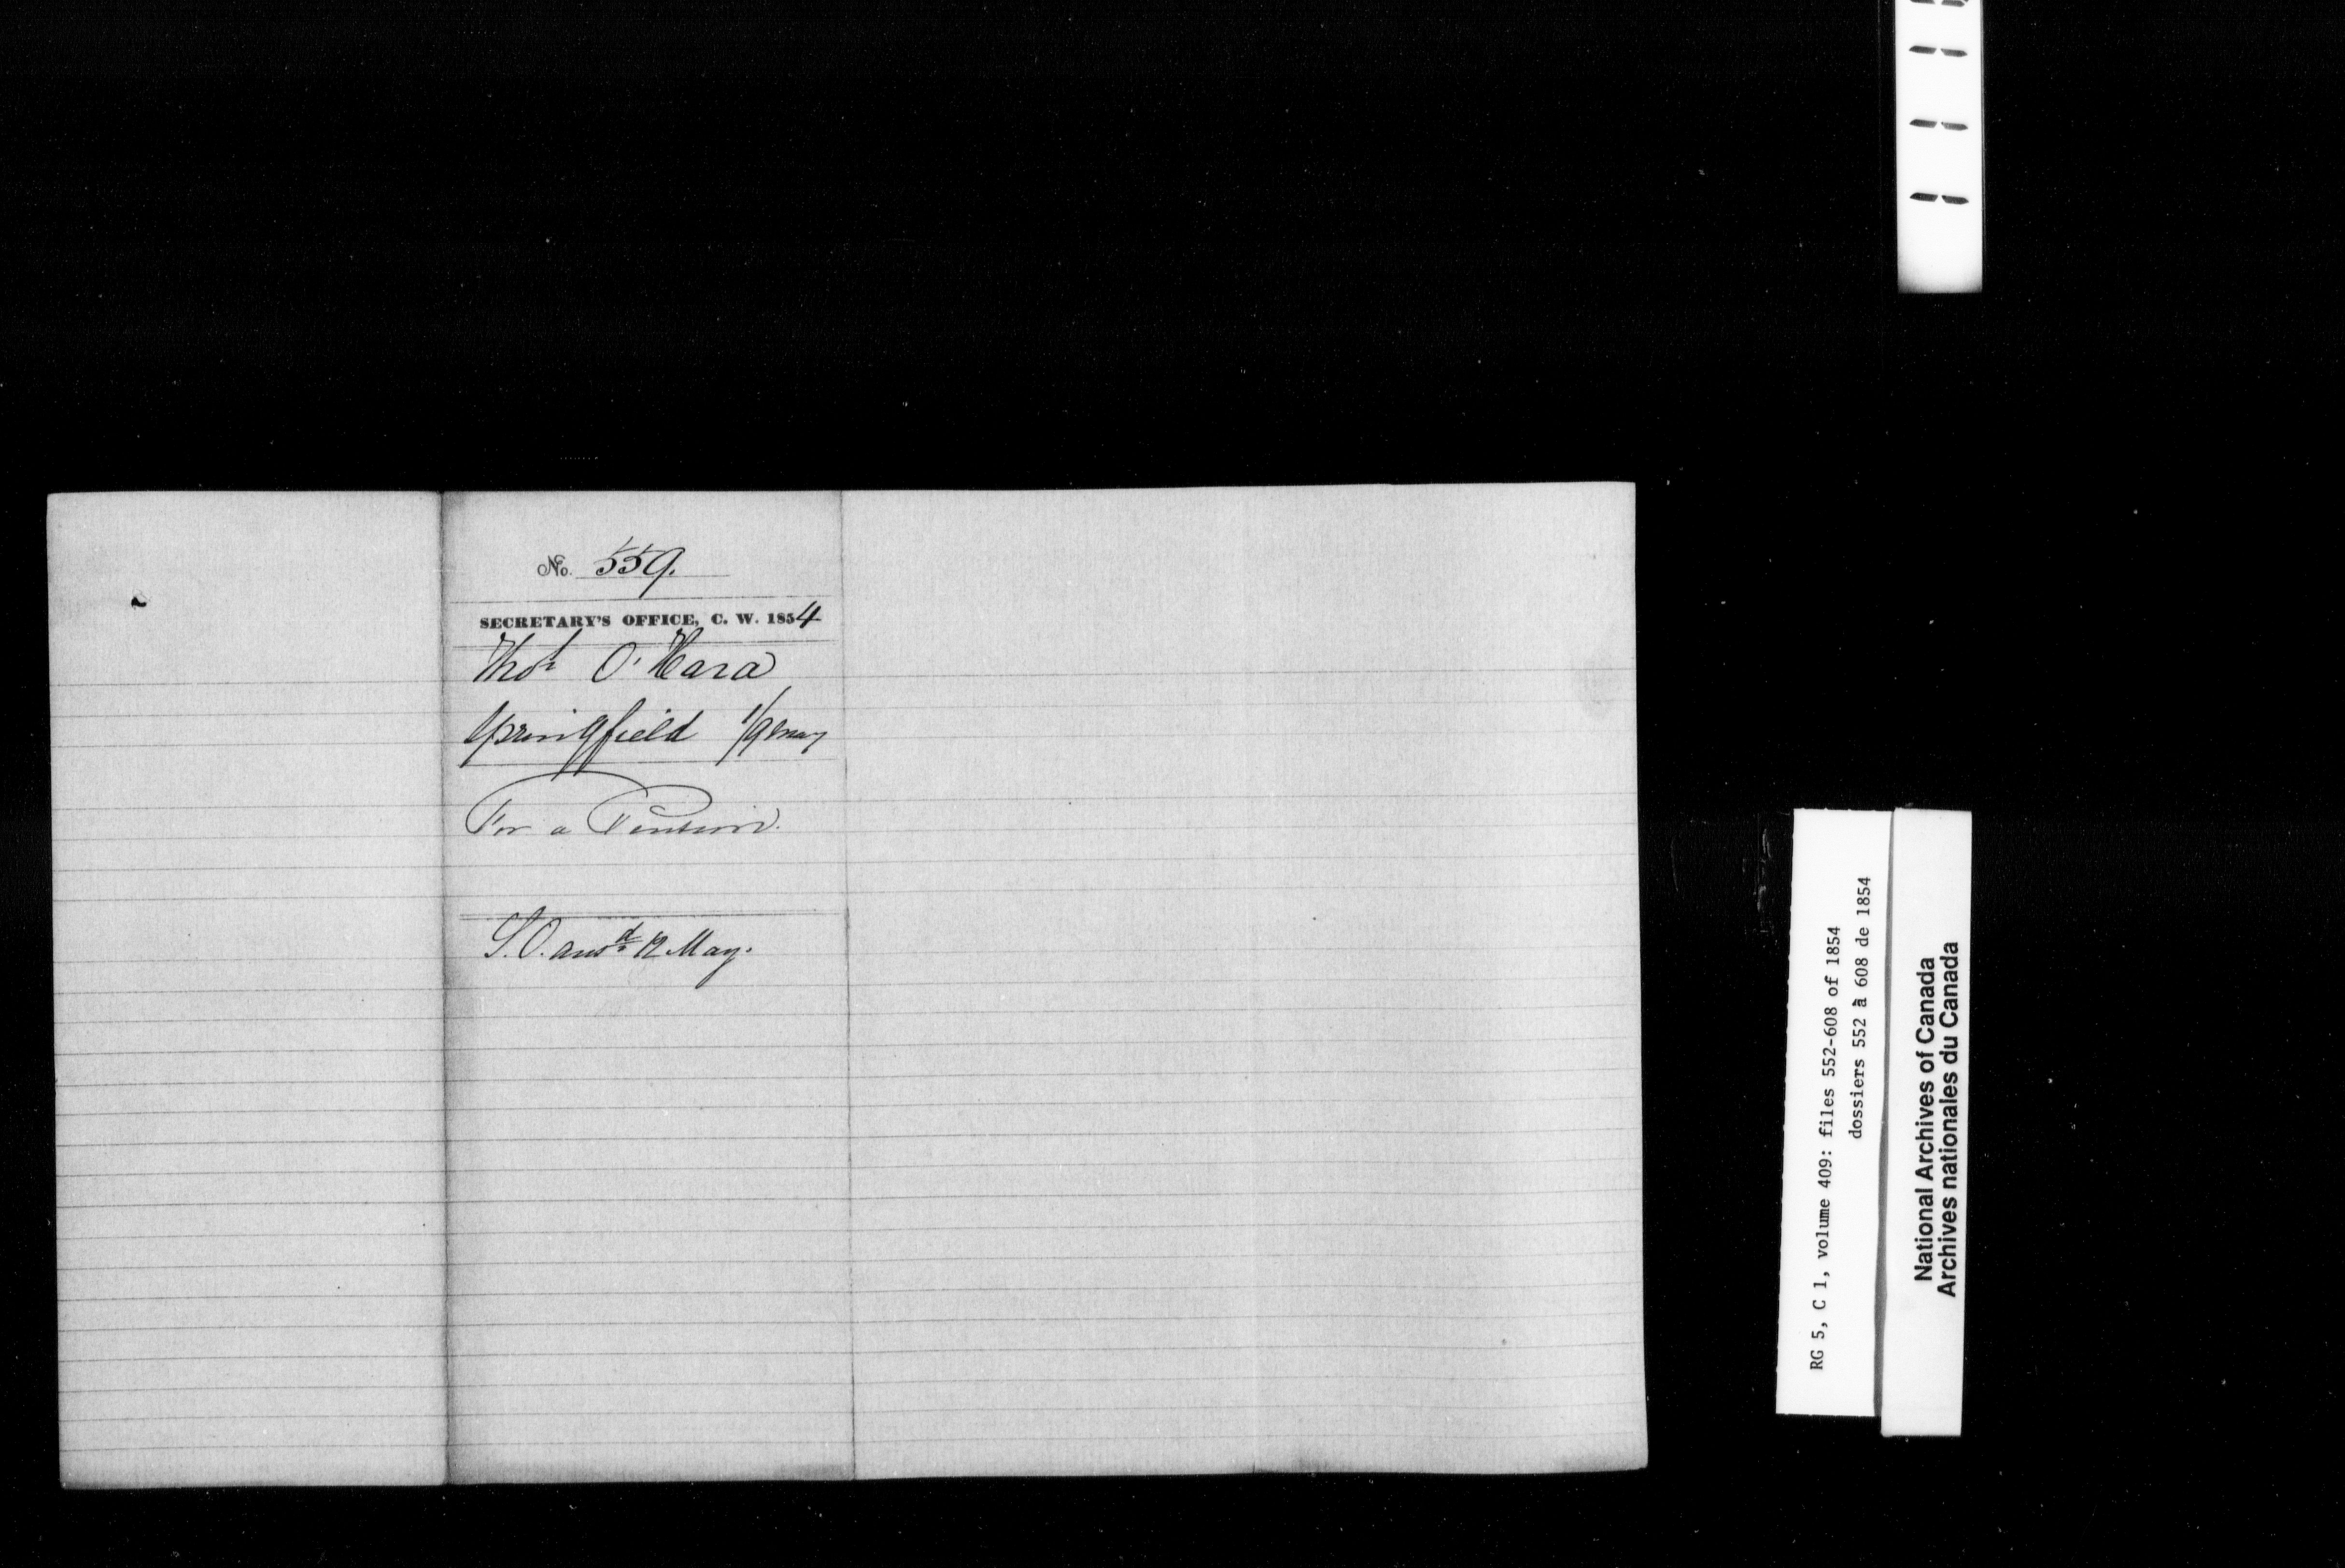 No. 559.
SECRETARY'S OFFICE, C. W. 1854
Thos O'Hara
Springfield 1/9 May
For a Pension.
S.O. ansd 12 May.
RG 5, C 1, volume 409: files 552-608 of 1854
dossiers 552 à 608 de 1854
National Archives of Canada
Archives nationales du Canada